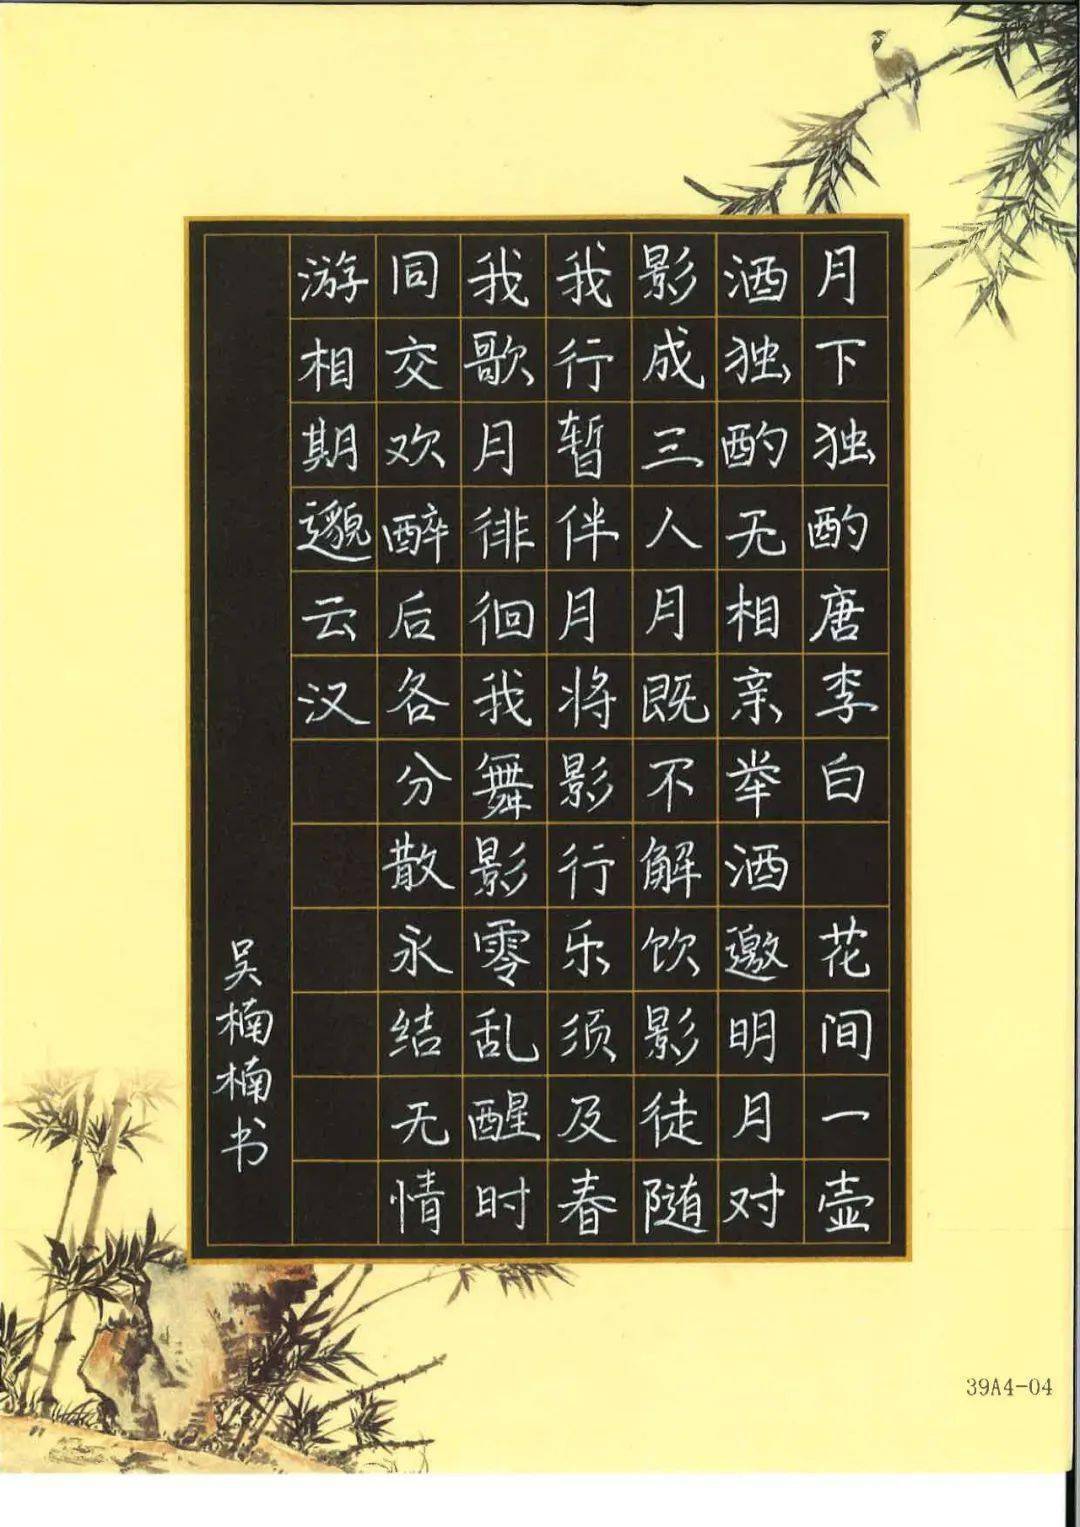 月下独酌唐李白 花间一壶
酒独酌无相亲举酒邀明月对
影成三人月既不解饮影徒随
我行暂伴月将影行乐须及春
我歌月徘徊我舞影零乱醒时
同交欢醉后各分散永结无情
游相期邈云汉
吴楠楠书
39A4-04